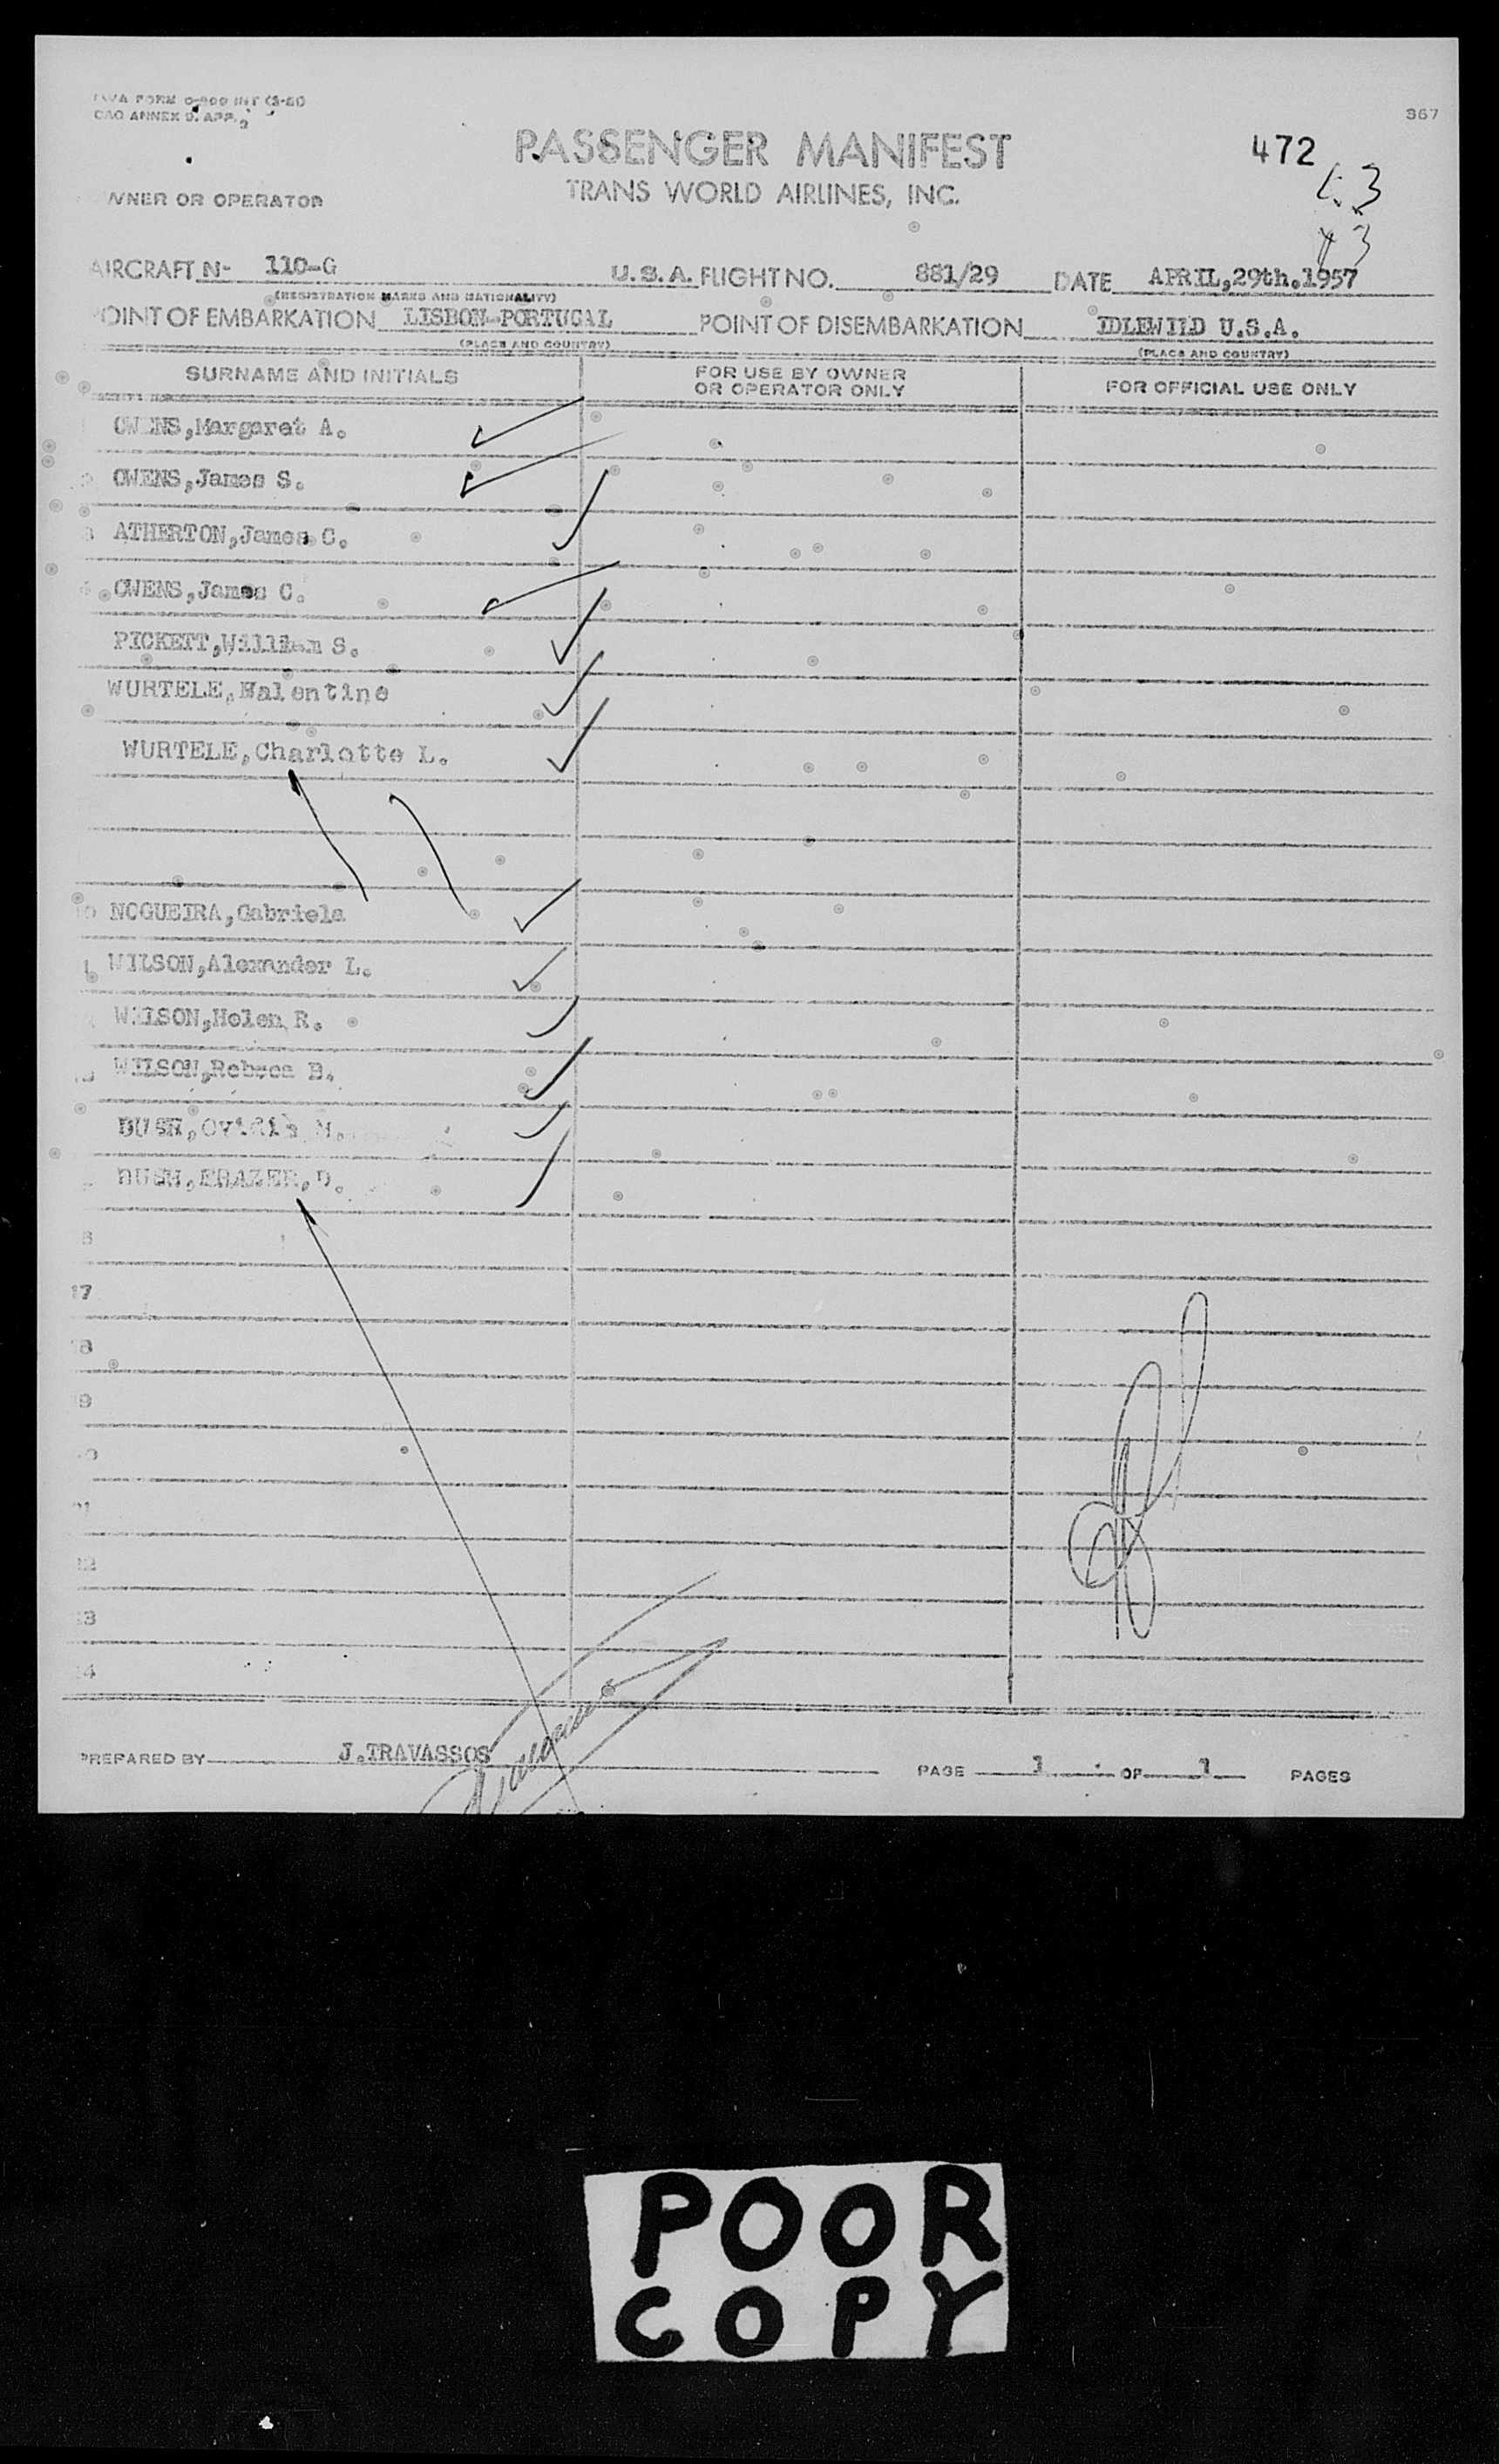 FORM INT
ANNEX 9. APP. 2
367
PASSENGER MANIFEST
472
TRANS WORLD AIRLINES, INC.
WNER OR OPERATOR
3
3
AIRCRAFT N- 110-G U.S.A. FLIGHT NO. 881/29 DATE APRIL,29th.1957
(REGISTRATION MARKS AND NATIONALITY)
OINT OF EMBARKATION LISBON-PORTUGAL POINT OF DISEMBARKATION IDLEWILD U.S.A.
(PLACE AND COUNTRY) (PLACE AND COUNTRY)
SURNAME AND INITIALS FOR USE BY OWNER OR OPERATOR ONLY FOR OFFICIAL USE ONLY
OWENS,Margaret A.
OWENS,James S.
3 ATHERTON,James C.
OWENS,James C.
PICKETT,William S.
WURTELE, 
WURTELE,Charlotte L.
NOGUEIRA,Gabriela
WILSON,Alexander L.
WILSON,Helen R.
WILSON,Rebeca B.
BUSH, M.
BUSH,FRAZER,D.
17
18
19
PREPARED BY J.TRAVASSOS PAGE 1 OF 1 PAGES
POOR
COPY